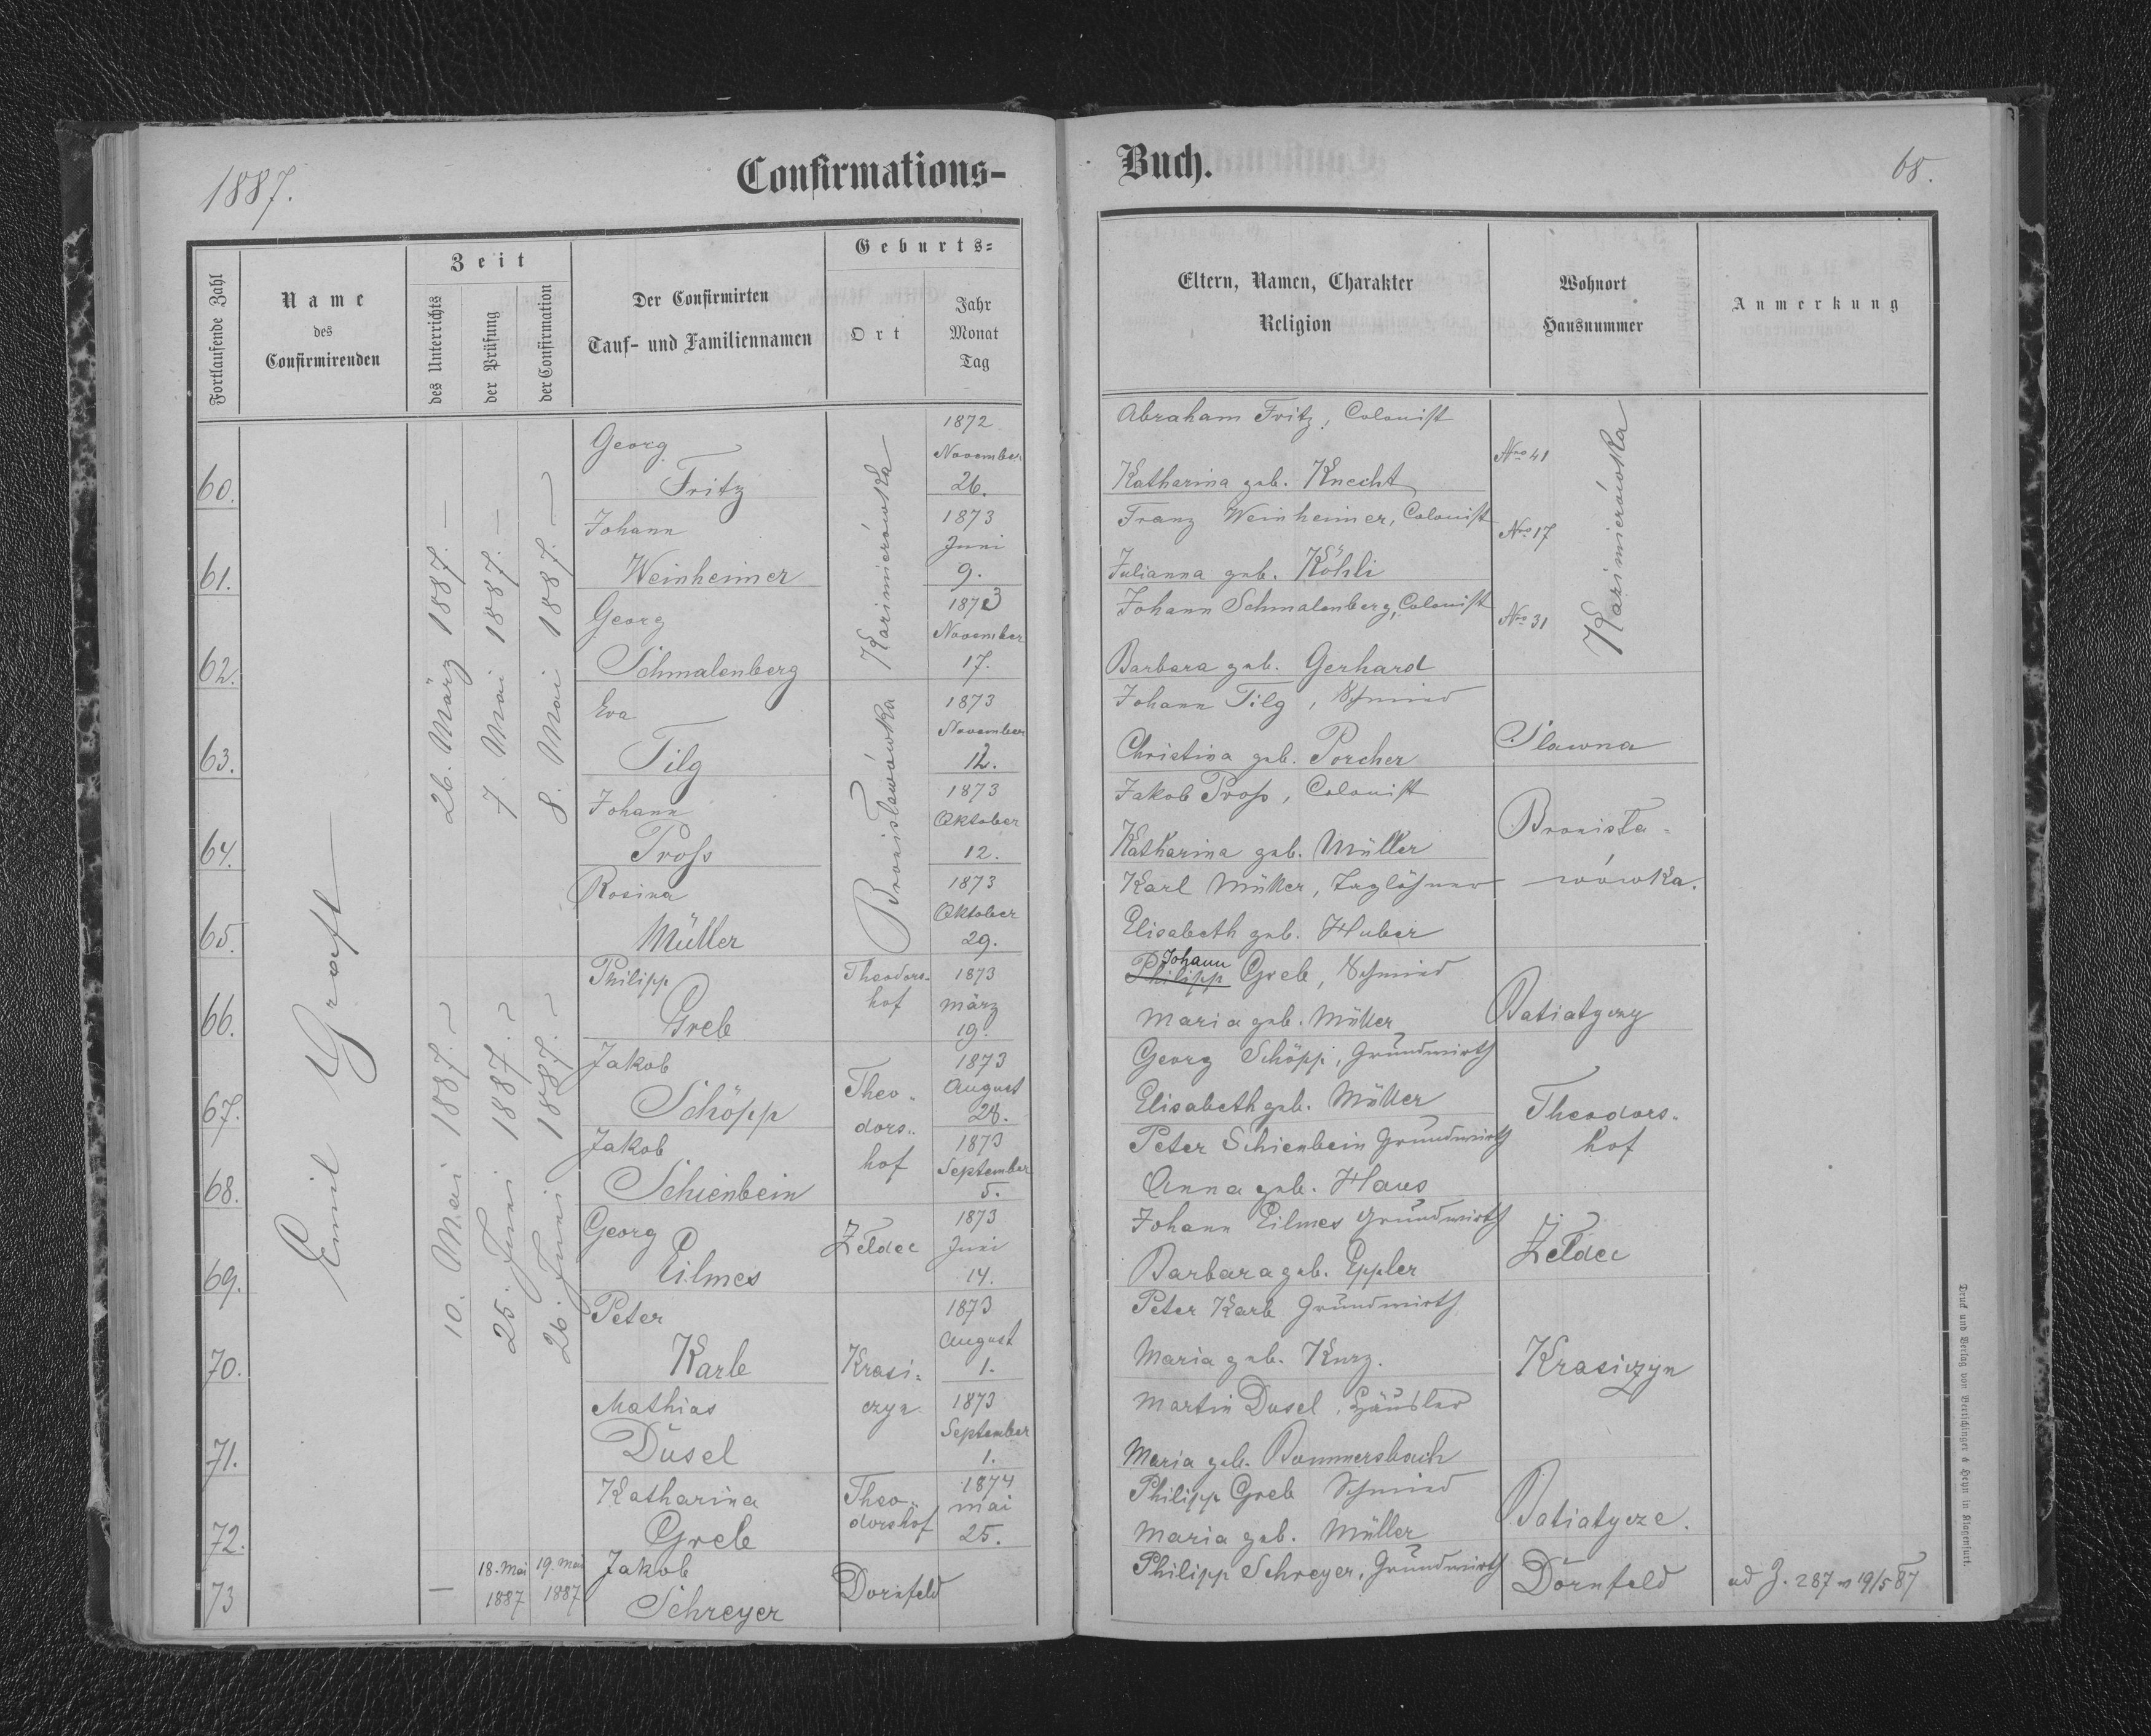 1887.
Confirmations-
Buch.
68.
Fortlaufende Zahl
Name
des
Confirmirenden
Zeit
des Unterrichts
der Prüfung
der Confirmation
Der Confirmirten
Tauf- und Familiennamen
Geburts-
Ort
Jahr
Monat
Tag
Eltern, Namen, Charakter
Religion
Wohnort
Hausnummer
Anmerkung
Emil Graft
26. März 1887.
7. Mai 1887.
8. Mai 1887.
Kazimierówka
Kazimierówka
60.
Georg
Fritz
1872
November
26.
Abraham Fritz, Colonist
Katharina geb. Knecht
Nro 41
61.
Johann
Weinheimer
1873
Juni
9.
Franz Weinheimer, Colonist
Julianna geb. Köhli
Nro 17
62.
Georg
Schmalenberg
1873
November
17.
Johann Schmalenberg, Colonist
Barbara geb. Gerhard
Nro 31
Bronisławówka
63.
Eva
Tilg
1873
November
12.
Johann Tilg, Schmied
Christina geb. Porcher
Sławna
64.
Johann
Proß
1873
Oktober
12.
Jakob Proß, Colonist
Katharina geb. Müller
Bronisła-
wówka.
65.
Rosina
Müller
1873
Oktober
29.
Karl Müller, Taglöhner
Elisabeth geb. Huber
10. Mai 1887.
25. Juni 1887.
26. Juni 1887.
66.
Philipp
Greb
Theodors-
hof
1873
März
19.
Johann
Philipp Greb, Schmied
Maria geb. Müller
Batiatyczy
67.
Jakob
Schöpp
Theo-
dors-
hof
1873
August
28.
Georg Schöpp, Grundwirth
Elisabeth geb. Müller
Theodors-
hof
68.
Jakob
Schienbein
1873
September
5.
Peter Schienbein Grundwirth
Anna geb. Haus
69.
Georg
Eilmes
Żełdec
1873
Juni
14.
Johann Eilmes Grundwirth
Barbara geb. Eppler
Żełdec
70.
Peter
Karle
Krasi-
czyn
1873
August
1.
Peter Karle Grundwirth
Maria geb. Kurz.
Krasiczyn
71.
Mathias
Dusel
1873
September
1.
Martin Dusel, Häusler
Maria geb. Bommersbach
72.
Katharina
Greb
Theo-
dorshof
1874
Mai
25.
Philipp Greb Schmied
Maria geb. Müller
Batiatycze.
73
—
18. Mai
1887
19. Mai
1887
Jakob
Schreyer
Dornfeld
Philipp Schreyer, Grundwirth
Dornfeld
ad Z. 287 19/5 87
Druck und Verlag von Bertschinger & Heyn in Klagenfurt.